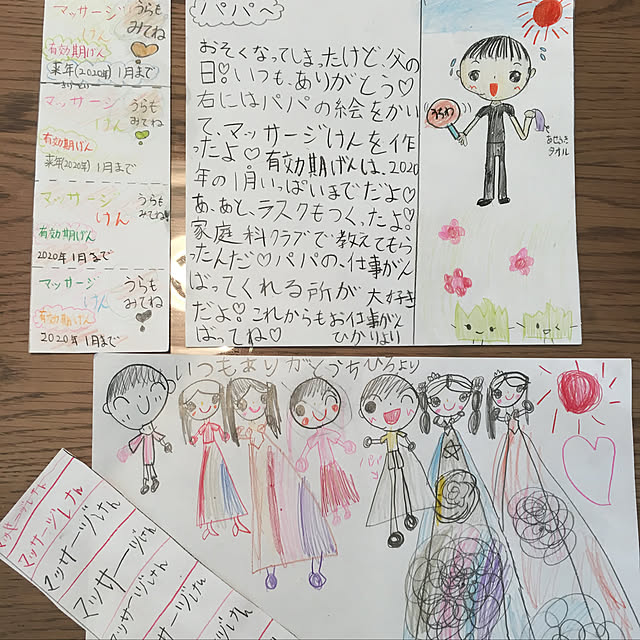 マッサージ
けん
うらも
みてね
有効期げん
来年(2020年)1月まで
マッサージ
けん
うらも
みてね
有効期げん
来年(2020年)1月まで
マッサージ
けん
うらも
みてね
有効期げん
2020年1月まで
マッサージ
けん
うらも
みてね
有効期げん
2020年1月まで
パパへ
おそくなってしまったけど、父の
日♡いつも、ありがとう♡
右にはパパの絵をかい
て、マッサージけんを作
ったよ♡有効期げんは、2020
年の1月いっぱいまでだよ♡
あ、あと、ラスクもつくったよ♡
家庭科クラブで教えてもら
ったんだ♡パパの、仕事がん
ばってくれる所が大好き
だよ♡これからもお仕事がん
ばってね♡ ひかりより
うちわ
あせふき
タオル
いつもありがとうちひろより
マッサージけん
マッサージけん
マッサージけん
マッサージけん
マッサージけん